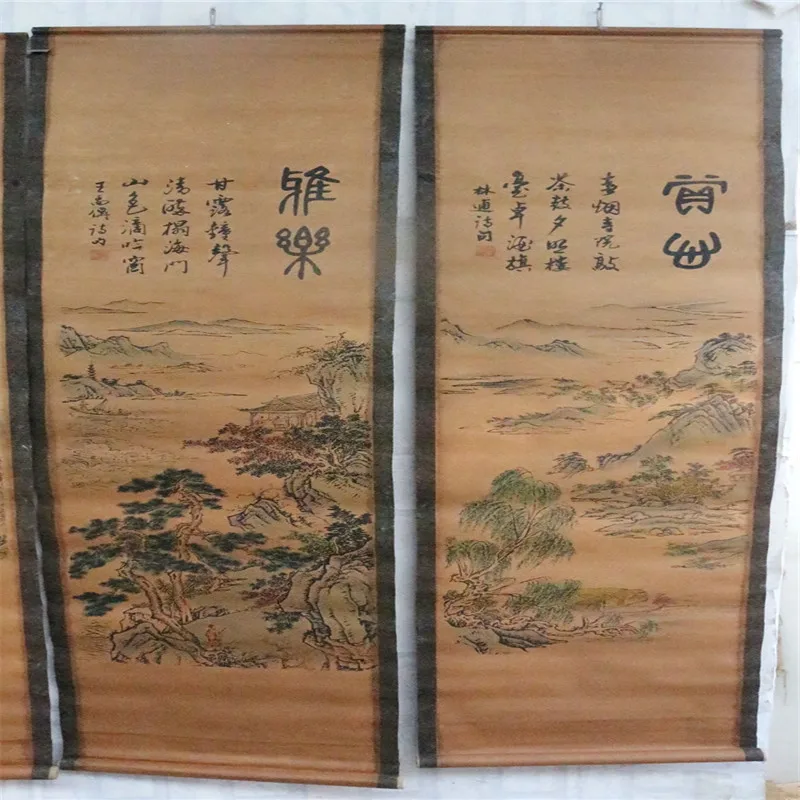 春烟寺院敲
茶鼓夕照樓
臺卓酒旗
林逋詩句
雅樂
甘露鐘聲
清醉榻海門
山色滴吟窗
王禹偁詩句